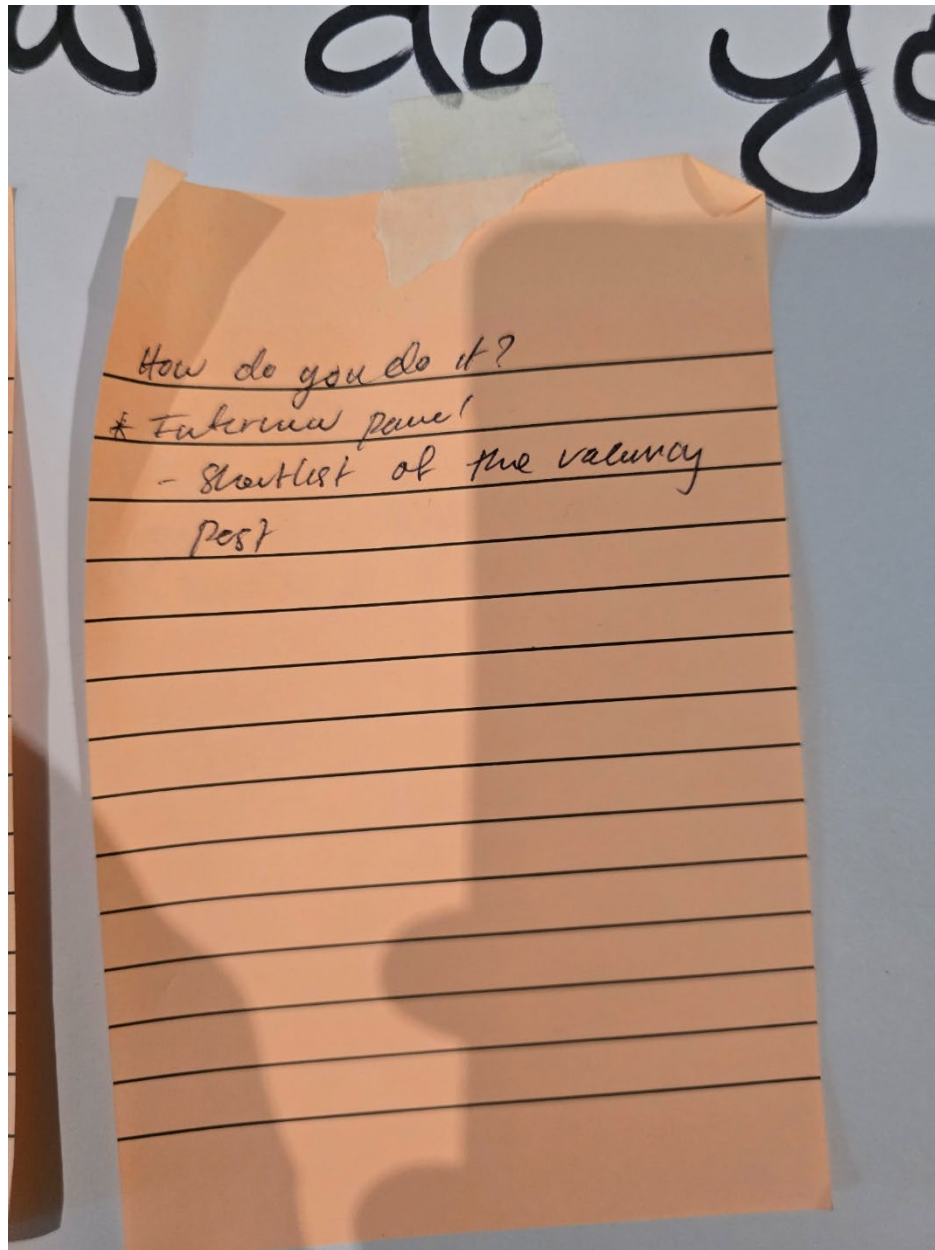 do yo
How do you do it?
* Interview panel
- Shortlist of the vacancy
post